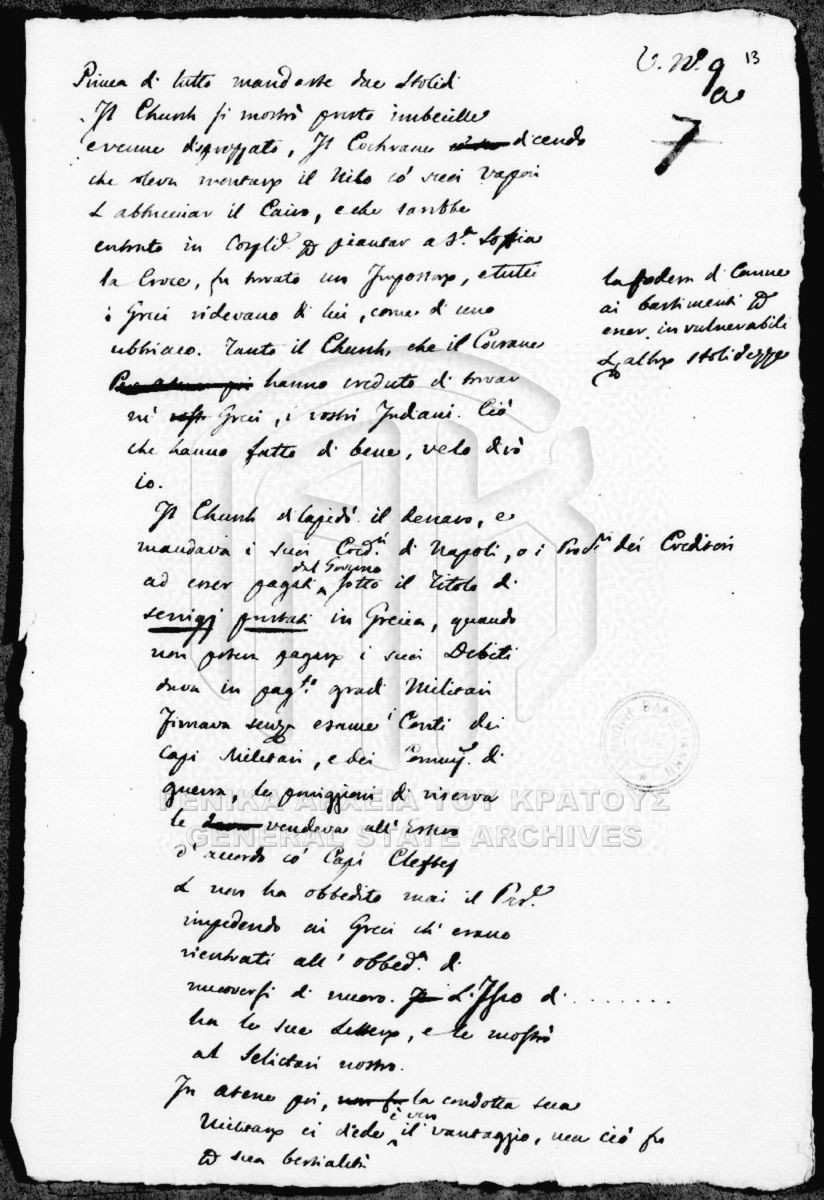 V. Nº 9 13
a
7
Prima di tutto mandaste due stolidi
Il Church si mostrò presto imbecille
e venne disprezzato, Il Cochrane dicendo
che voleva montare il Nilo có suoi Vapori
& abbruciar il Cairo, e che sarebbe
entrato in Costpli per piantar a Sta Soffia
la Croce, fu trovato un Impostore, e tutti
i Greci ridevano di lui, come di uno
ubbriaco. Tanto il Church, che il Cocrane
hanno creduto di trovar
nei Greci, i vostri Indiani. Ció
che hanno fatto di bene, velo diró
io.
la fodera di Canne
ai bastimenti per
esser invulnerabili
& altre stolidezze
Il Church dilapidó il denaro, e
mandava i suoi Cred.ri di Napoli, o i Prod.ri dei Creditori
ad esser pagati dal Governo sotto il Titolo di
servigj prestati in Grecia, quando
non poteva pagare i suoi Debiti
dava in pag.to gradi Militari
Firmava senza esame i Conti dei
Capi Militari, e dei Commiss. di
guerra, le provigioni di riserva
le vendeva all'
d'accordo có Capi Cleftes
& non ha obbedito mai il Pres.
impedendo ai Greci ch'erano
rientrati all'obbed.a di
muoversi di nuovo. di ........
ha le sue Lettere, e le mostró
al Selictari nostro.
In Atene poi, la condotta sua
Militare ci diede il vantaggio, ma ció fu
per sua bestialità
ΓΕΝΙΚΑ ΑΡΧΕΙΑ ΤΟΥ ΚΡΑΤΟΥΣ
GENERAL STATE ARCHIVES